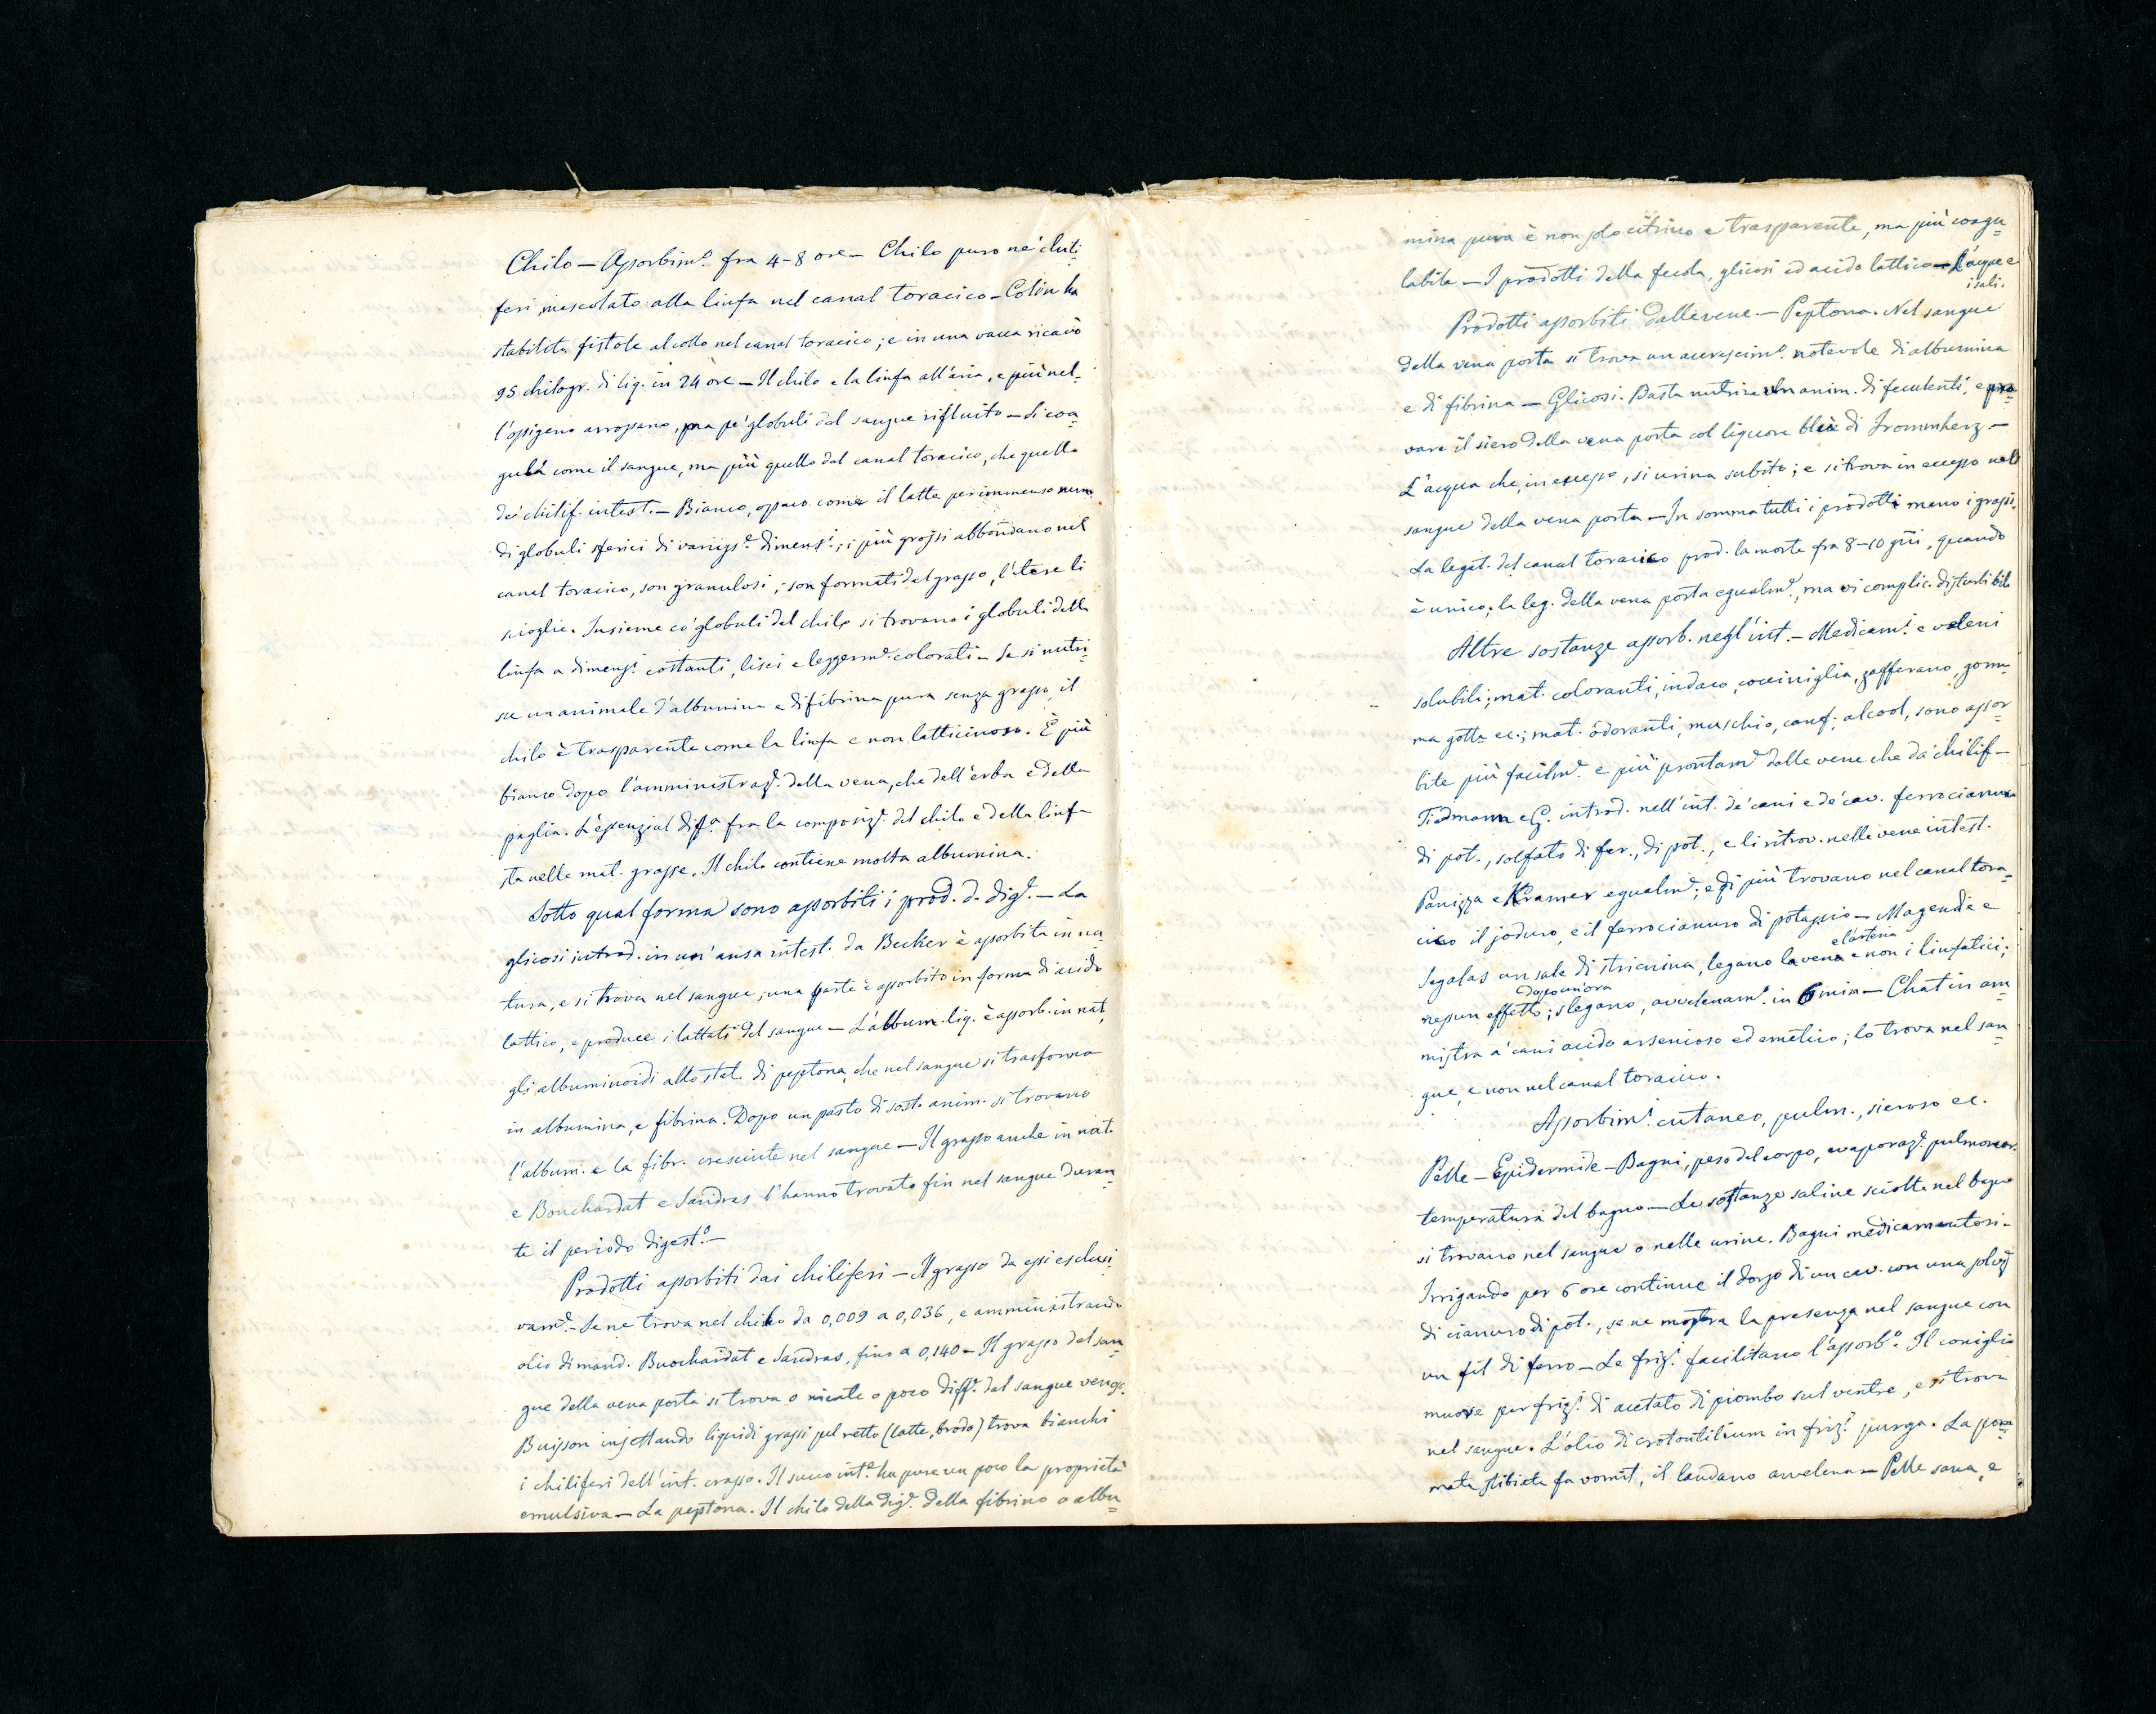 Chilo — Assorbim.º fra 4-8 ore — Chilo puro ne' chili=
feri, mescolato alla linfa nel canal toracico — Colin ha
stabilite fistole al collo nel canal toracico; e in una vacca ricavò
95 chilogr. di liq. in 24 ore — Il chilo e la linfa all'aria, e più nel=
l'ossigeno arrossano, ma pe' globuli del sangue rifluito — Si coa=
gula come il sangue, ma più quello del canal toracico, che quello
de' chilif. intest. — Bianco, opaco come il latte per immenso num.
di globuli sferici di variis.e dimens.i; i più grossi abbondano nel
canal toracico, son granulosi; son formati dal grasso, l'etere li
scioglie. Insieme co' globuli del chilo si trovano i globuli della
linfa a dimens.i costanti, lisci e leggerm.e colorati — Se si nutri=
sce un animale d'albumina e di fibrina pura senza grasso, il
chilo è trasparente come la linfa e non latticinoso. È più
bianco dopo l'amministraz.e della vena, che dell'erba e della
paglia. L'essenzial diff.a fra la composiz.e del chilo e della linfa
sta nelle mat. grasse. Il chilo contiene molta albumina.
Sotto qual forma sono assorbiti i prod. d. dig.e — La
glicosi introd. in un'ansa intest. da Becker è assorbita in na=
tura, e si trova nel sangue; una parte è assorbito in forma di acido
lattico, e produce i lattati del sangue — L'album. liq. è assorb. in nat.,
gli albuminoidi allo stat. di peptona, che nel sangue si trasforma
in albumina, e fibrina. Dopo un pasto di sost. anim. si trovano
l'album. e la fibr. cresciute nel sangue — Il grasso anche in nat.
e Bouchardat e Sandras l'hanno trovato fin nel sangue duran=
te il periodo digest.º —
Prodotti assorbiti dai chiliferi — Il grasso da essi esclusi=
vam.e — Se ne trova nel chilo da 0,009 a 0,036, e amministrando
olio di mand. Buochardat e Sandras, fino a 0,140 — Il grasso del san=
gue della vena porta si trova o niente o poco diff.e dal sangue venos.
Buisson injettando liquidi grassi pel retto (latte, brodo) trova bianchi
i chiliferi dell'int. crasso. Il succo int.e ha pure un poco la proprietà
emulsiva — La peptona. Il chilo della dig.e della fibrina o albu=
mina pura è non solo citrino e trasparente, ma più coagu=
labile — I prodotti della fecola, glicosi ed acido lattico — L'acqua e
i sali.
Prodotti assorbiti dalle vene — Peptona. Nel sangue
della vena porta si trova un accrescim.º notevole di albumina
e di fibrina — Glicosi. Basta nutrire un anim. di feculenti, e pro=
vare il siero della vena porta col liquore bleù di Frommherz —
L'acqua che, in eccesso, si urina subito; e si trova in eccesso nel
sangue della vena porta — In somma tutti i prodotti meno i grassi.
La legat. del canal toracico prod. la morte fra 8-10 gni, quando
è unico; la leg. della vena porta egualm.e, ma vi complic. disturbi bile
Altre sostanze assorb. negl'int. — Medicam.i e veleni
solubili; mat. coloranti, indaco, cocciniglia, zafferano, gom=
ma gotta ec.; mat. odoranti, muschio, canf., alcool, sono assor=
bite più facilm.e e più prontam.e dalle vene che da' chilif —
Tiedmann e G. introd. nell'int. de' cani e de' cav. ferrocianuro
di pot., solfato di fer., di pot., e li ritrov. nelle vene intest.
Panizza e Kramer egualm.e; e di più trovano nel canal tora=
cico il joduro, e il ferrocianuro di potassio — Magendie e
Segalas un sale di stricnina, legano la vena e l'arteria e non i linfatici;
nessun effetto; dopo un'ora slegano, avvelenam.º in 6 min — Chatin am=
mistra a' cani acido arsenioso ed emetico; lo trova nel san=
gue, e non nel canal toracico.
Assorbim.i cutaneo, pulm., sieroso ec.
Pelle — Epidermide — Bagni, peso del corpo, evaporaz.e pulmonar.
temperatura del bagno — Le sostanze saline sciolte nel bagno
si trovano nel sangue o nelle urine. Bagni medicamentosi —
Irrigando per 6 ore continue il dorso di un cav. con una soluz.
di cianuro di pot., se ne mostra la presenza nel sangue con
un fil di ferro — Le friz.i facilitano l'assorb.º Il coniglio
muore per friz.i di acetato di piombo sul ventre, e si trova
nel sangue. L'olio di crotontilium in friz.i purga. La pom=
mata stibiata fa vomit., il laudano avvelena — Pelle sana, e